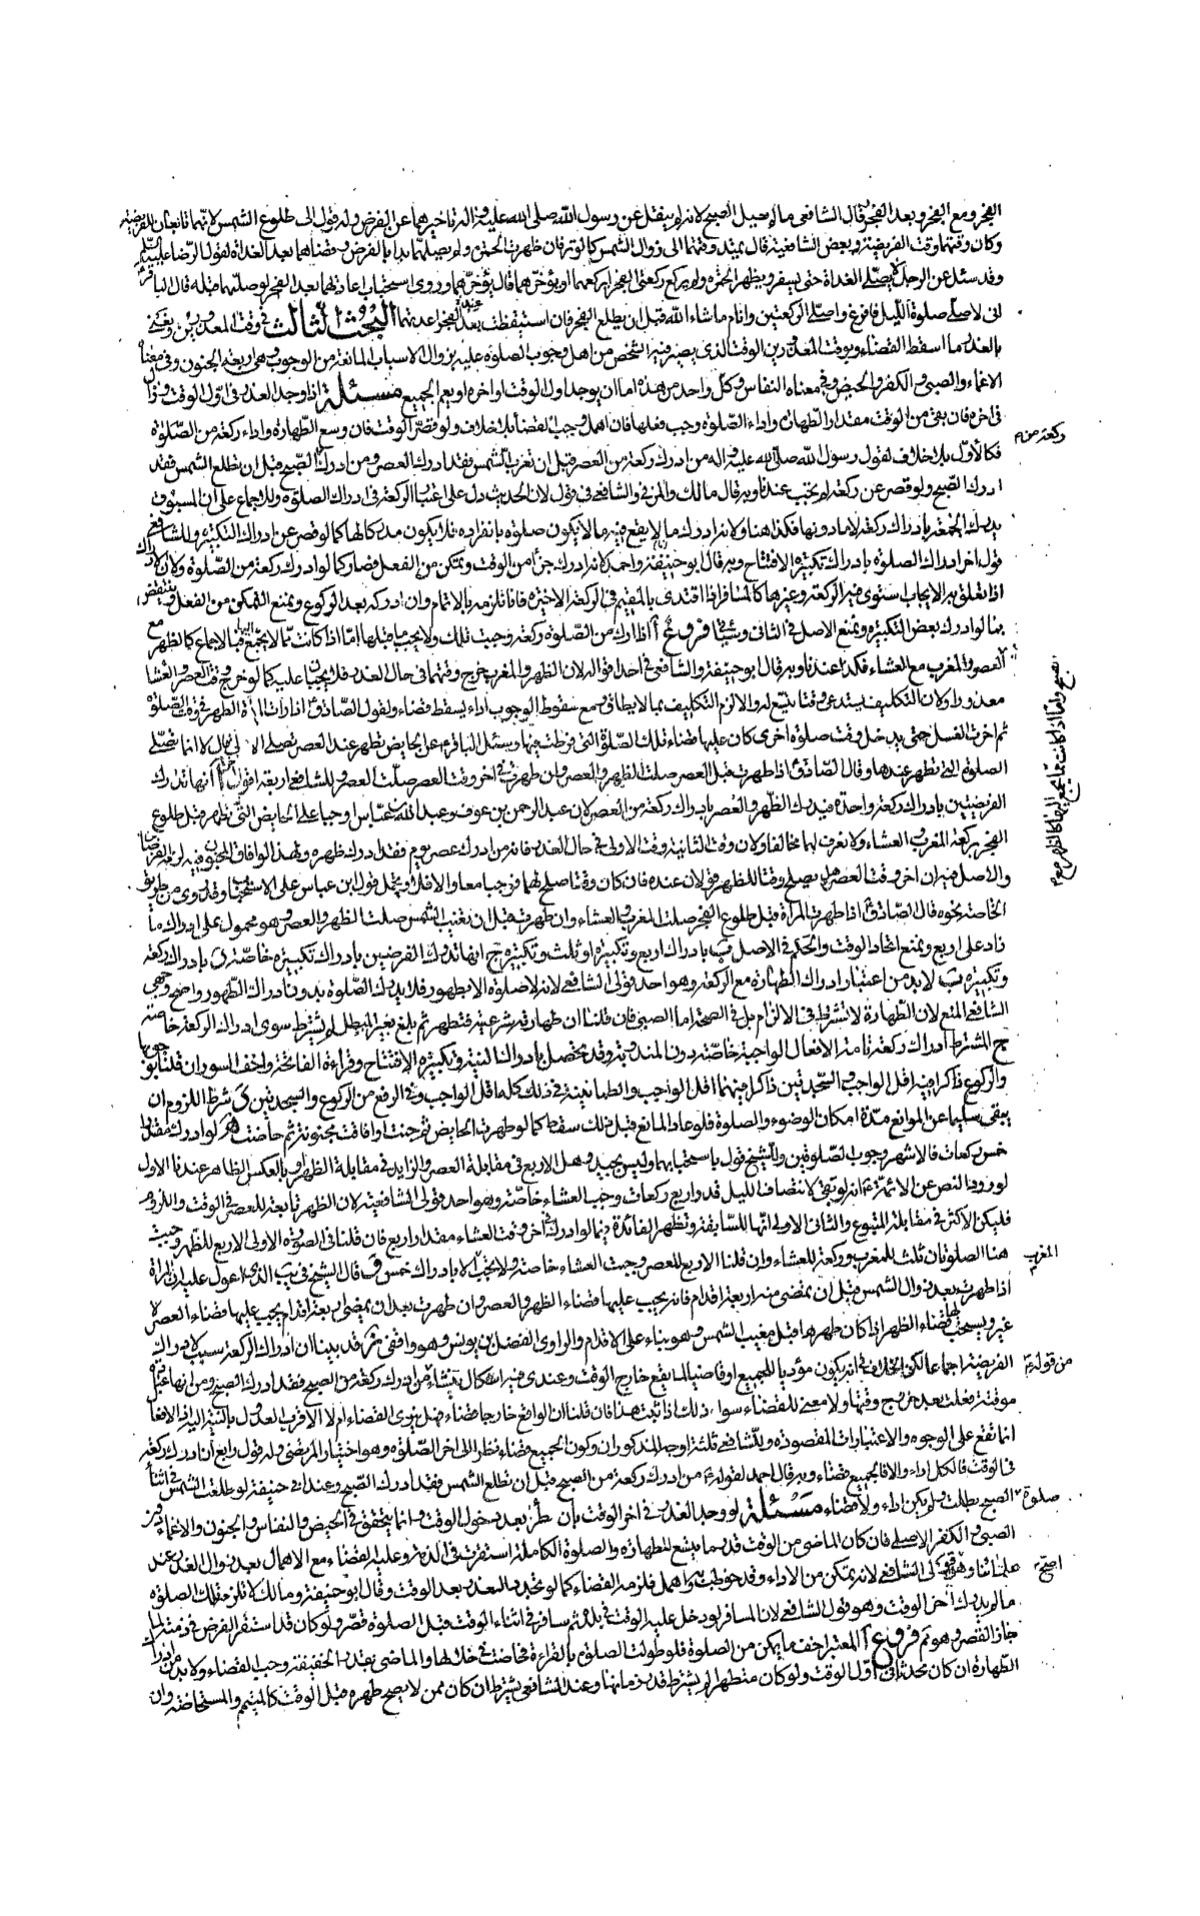 الفجر ومع الفجر وبعد الفجر قال الشافعي ما لم يصل الصبح لانه لم ينقل عن رسول الله صلى الله عليه واله تاخيرهما عن الفرض وله قول الى طلوع الشمس لانهما تابعان للفريضة
وكان وقتهما وقت الفريضة وبعض الشافعية قال يمتد وقتهما الى زوال الشمس كالوتر فان ظهرت الحمرة ولم يصلهما بدا بالفرض وقضاهما بعد الغداة لقول الرضا عليه السلم
وقد سئل عن الرجل لا يصلي الغداة حتى يسفر ويظهر الحمرة ولم يركع ركعتي الفجر ايركعهما او يؤخرهما قال يؤخرهما وروى استحباب اعادتهما بعد الفجر لو صلهما قبله قال الباقر
اني لاصلي صلوة الليل فافرغ واصلي الركعتين وانام ما شاء الله قبل ان يطلع الفجر فان استيقظت عند الفجر اعدتهما البحث الثالث في وقت المعذورين ونعني
بالعذر ما اسقط القضاء وبوقت المعذورين الوقت الذي يصير فيه الشخص من اهل وجوب الصلوة عليه بزوال الاسباب المانعة من الوجوب وهي اربعة الجنون وفي معناه
الاغماء والصبى والكفر والحيض وفي معناه النفاس وكل واحد من هذه اما ان يوجد اول الوقت او اخره او يعم الجميع مسئلة اذا وجد العذر في اول الوقت وزال
في اخره فان بقي من الوقت مقدار الطهارة واداء الصلوة وجب فعلها فان اهمل وجب القضأ بلا خلاف ولو قصر الوقت فان وسع الطهارة واداء ركعة من الصلوة
ركعة من
فكالاول بلا خلاف لقول رسول الله صلى الله عليه واله من ادرك ركعة من العصر قبل ان تغرب الشمس فقد ادرك العصر ومن ادرك الصبح قبل ان تطلع الشمس فقد
ادرك الصبح ولو قصر عن ركعة لم يجب عندنا وبه قال مالك والمزني والشافعي في قول لان الحديث دل على اعتبار الركعة في ادراك الصلوة وللاجماع على ان المسبوق
يدرك الجمعة بادراك ركعة لا ما دونها فكذا هنا ولانه ادرك ما لا يقع فيه ما لا يكون صلوة بانفراده فلا يكون مدركا لها كما لو قصر عن ادراك التكبيرة وللشافعي
قول اخر ادراك الصلوة بادراك تكبيرة الافتتاح وبه قال ابو حنيفة واحمد لانه ادرك جزأ من الوقت ويتمكن من الفعل فصار كما لو ادرك ركعة من الصلوة ولان الادراك
اذا تعلق به الايجاب ستوى فيه الركعة وغيرها كالمسافر اذا اقتدى بالمقيم في الركعة الاخيرة فانا نلزمه بالاتمام وان ادركه بعد الركوع ونمنع التمكن من الفعل وينتقض
بما لو ادرك بعض التكبيرة ونمنع الاصل في الثاني وسيأتي فروع آ اذا ادرك من الصلوة ركعة وجبت تلك ولا يجب ما قبلها اما اذا كانت مما لا يجمع اليها فبالاجماع كما لظهر مع
العصر والمغرب مع العشاء فكذا عندنا وبه قال ابو حنيفة والشافعي في احد اقواله لان الظهر والمغرب خرج وقتهما في حال العذر فلا يجبان عليه كما لو خرج وقت العصر والعشا
معذورا ولان التكليف يستدعي وقتا يتسع له والا لزم التكليف بما لا يطاق مع سقوط الوجوب اداء يسقط قضاء ولقول الصادق اذا رات المراة الطهر في وقت الصلوة
ثم اخرت الغسل حتى يدخل وقت صلوة اخرى كان عليها قضاء تلك الصلوة التي فرطت فيها وسئل الباقر عن الحايض تطهر عند العصر تصلي الاولى قال لا انما تصلي
الصلوة التي تطهر عندها وقال الصادق اذا طهرت قبل العصر صلت الظهر والعصر وان طهرت في اخر وقت العصر صلت العصر وللشافعي اربعة اقوال آ انها تدرك
الفريضتين بادراك ركعة واحدة فيدرك الظهر والعصر بادراك ركعة من العصر لان عبد الرحمن بن عوف وعبد الله بن عباس اوجبا على الحايض التي تطهر قبل طلوع
الفجر بركعة المغرب والعشاء ولا نعرف لهما مخالفا ولان وقت الثانية وقت الاولى في حال العذر فانه من ادرك عصر يوم فقد ادرك ظهره ولهذا لو افاق المجنون فيه لزمه الفرضان
والاصل فيه ان اخر وقت العصر هل يصلح وقتا للظهر قولان عنده فان كان وقتا صالح لهما فوجبا معا والا فلا ويحمل قول ابن عباس على الاستحباب وقد روى من طريق
الخاصة نحوه قال الصادق اذا طهرت المراة قبل طلوع الفجر صلت المغرب والعشاء وان طهرت قبل ان تغيب الشمس صلت الظهر والعصر وهو محمول على ادراك ما
زاد على اربع ونمنع اتحاد الوقت والحكم في الاصل ب بادراك اربع وتكبيرة او ثلث وتكبيرة ج انها تدرك الفرضين بادراك تكبيرة خاصة د بادراك ركعة
وتكبيرة ب لابد من اعتبار ادراك الطهارة مع الركعة وهو احد قولى الشافعي لانه لا صلوة الا بطهور فلا يدرك الصلوة بدون ادراك الطهور واصح وجهي
الشافعي المنع لان الطهارة لا تشترط في الالزام بل في الصحة اما الصبي فان قلنا ان طهارته شرعية فتطهر ثم بلغ بغير المبطل لم يشترط سوى ادراك الركعة خاصة
ج المشترط ادراك ركعة تامة الافعال الواجبة خاصة دون المندوبة وقد يحصل بادراك النية وتكبيرة الافتتاح وقراءة الفاتحة واخف السور ان قلنا بوجوبها
والركوع ذاكرا فيه اقل الواجب والسجدتين ذاكرا فيهما اقل الواجب والطمأنينة في ذلك كله اقل الواجب وفي الرفع من الركوع والسجدتين د شرط اللزوم ان
يبقى سليما عن الموانع مدة امكان الوضوء والصلوة فلو عاد المانع قبل ذلك سقط كما لو طهرت الحايض ثم جنت او افاقت مجنونة ثم حاضت ه لو ادرك مقدار
خمس ركعات فالاشهر وجوب الصلوتين وللشيخ قول باستحبابهما وليس بجيد وهل الاربع في مقابلة العصر والزايد في مقابلة الظهر او بالعكس الظاهر عندنا الاول
لورود النص عن الائمة انه لو بقي لانتصاف الليل قدر اربع ركعات وجب العشاء خاصة وهو احد قولى الشافعية لان الظهر تابعة للعصر في الوقت واللزوم
فليكن الاكثر في مقابلة المتبوع والثاني الاولى لانها للسابقة وتظهر الفائدة فيما لو ادرك في اخر وقت العشاء مقدار اربع فان قلنا في الصورة الاولى الاربع للظهر وجبت
المغرب
هنا الصلوتان ثلث للمغرب وركعة للعشاء وان قلنا الاربع للعصر وجبت العشاء خاصة ولا يجب الا بادراك خمس و قال الشيخ في يب الذي اعول عليه ان المراة
اذا طهرت بعد زوال الشمس قبل ان يمضي منه اربعة اقدام فانه يجب عليها قضاء الظهر والعصر وان طهرت بعد ان يمضي اربعة اقدام يجب عليها قضاء العصر لا
غير ويستحب لها قضاء الظهر اذا كان طهرها قبل مغيب الشمس وهو بناء على الاقدام والراوي الفضل بن يونس وهو واقفي ز قد بينا ان ادراك الركعة سبب لادراك
من قوله
الفريضة اجماعا لكن الخلاف في انه يكون مؤديا للجميع او قاضيا لما يقع خارج الوقت وعندي فيه اشكال ينشاء من ادرك ركعة من الصبح فقد ادرك الصبح ومن انها عبادة
موقتة فعلت بعد خروج وقتها ولا معنى للقضاء سواء ذلك اذا ثبت هذا فان قلنا ان الواقع خارجا قضاء فهل ينوي القضاء ام لا الاقرب العدول بالنية اليه اذ الافعال
انما تقع على الوجوه والاعتبارات المقصودة وللشافعي ثلثة اوجه المذكوران وكون الجميع قضاء نظرا الى اخر الصلوة وهو اختيار المرتضى وله قول رابع ان ادرك ركعة
في الوقت فالكل اداء والا فالجميع قضاء وبه قال احمد لقوله من ادرك ركعة من الصبح قبل ان تطلع الشمس فقد ادرك الصبح وعند ابي حنيفة لو طلعت الشمس في اثنأ
صلوة
الصبح بطلت ولم يكن اداء ولا قضاء مسئلة لو وجد العذر في اخر الوقت بان طرأ بعد دخول الوقت وانما يتحقق في الحيض والنفاس والجنون والاغماء دون
الصبى والكفر الاصلي فان كان الماضي من الوقت قدر ما يتسع للطهارة والصلوة الكاملة استقرت في الذمة وعليه القضاء مع الاهمال بعد زوال العذر عند
اصح
علمائنا وهو قولى الشافعي لانه يتمكن من الاداء وقد خوطب به واهمل فلزمه القضاء كما لو تجدد العذر بعد الوقت وقال ابو حنيفة ومالك لا تلزمه تلك الصلوة
ما لم يدرك اخر الوقت وهو قول للشافعي لان المسافر لو دخل عليه الوقت في بلده ثم سافر في اثناء الوقت قبل الصلوة قصر ولو كان قد استقر الفرض في ذمته لما
جاز القصر وهو ثم فروع آ المعتبر اخف ما يمكن من الصلوة فلو طولت الصلوة بالقراءة فحاضت في خلالها والماضي بقدر الخفيفة وجب القضاء ولابد من ادراك
الطهارة ان كان محدثا في اول الوقت ولو كان متطهرا لم يشترط قدر زمانها وعند الشافعي يشترط ان كان ممن لا يصح طهره قبل الوقت كالمتيمم والمستحاضة وان